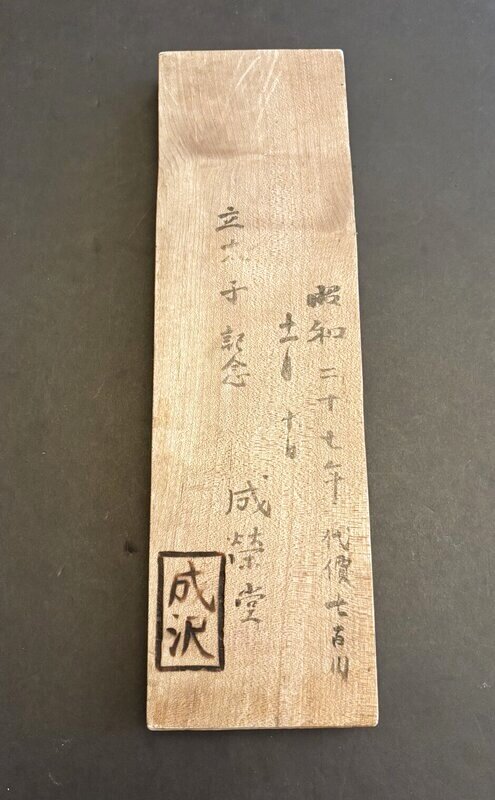 昭和二十七年 代價七百円
十一月 十日
立太子記念 成榮堂
成沢